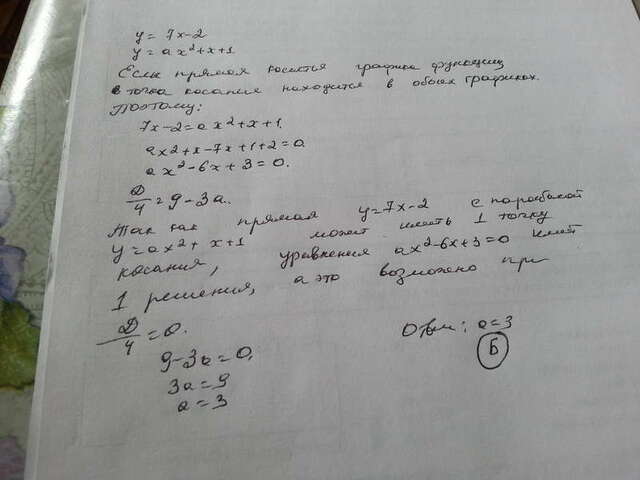 y = 7x-2
y = ax²+x+1
Если прямая касается графика функции,
то точка касания находится в обоих графиках.
Поэтому:
7x-2=ax²+x+1.
ax²+x-7x+1+2=0.
ax²-6x+3=0.
D/4=9-3a.
Так как прямая y=7x-2 с параболой
y=ax²+x+1 может иметь 1 точку
касания, уравнения ax²-6x+3=0 имеет
1 решения, а это возможно при
D/4=0.
9-3a=0.
3a=9
a=3
Ответ: a=3
Б